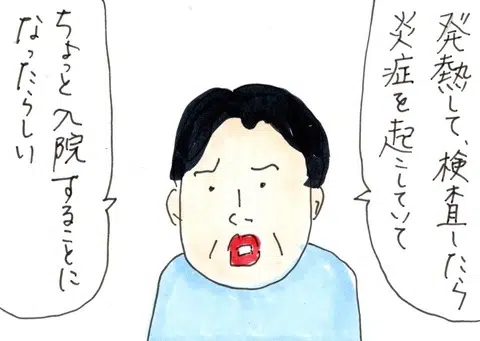 発熱して、検査したら
炎症を起こしていて
ちょっと入院することに
なったらしい